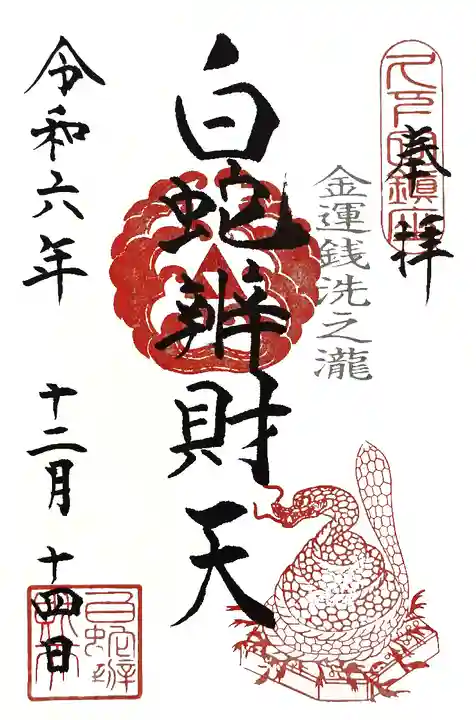 奉拝
金運銭洗之瀧
白蛇辨財天
令和六年 十二月 十四日